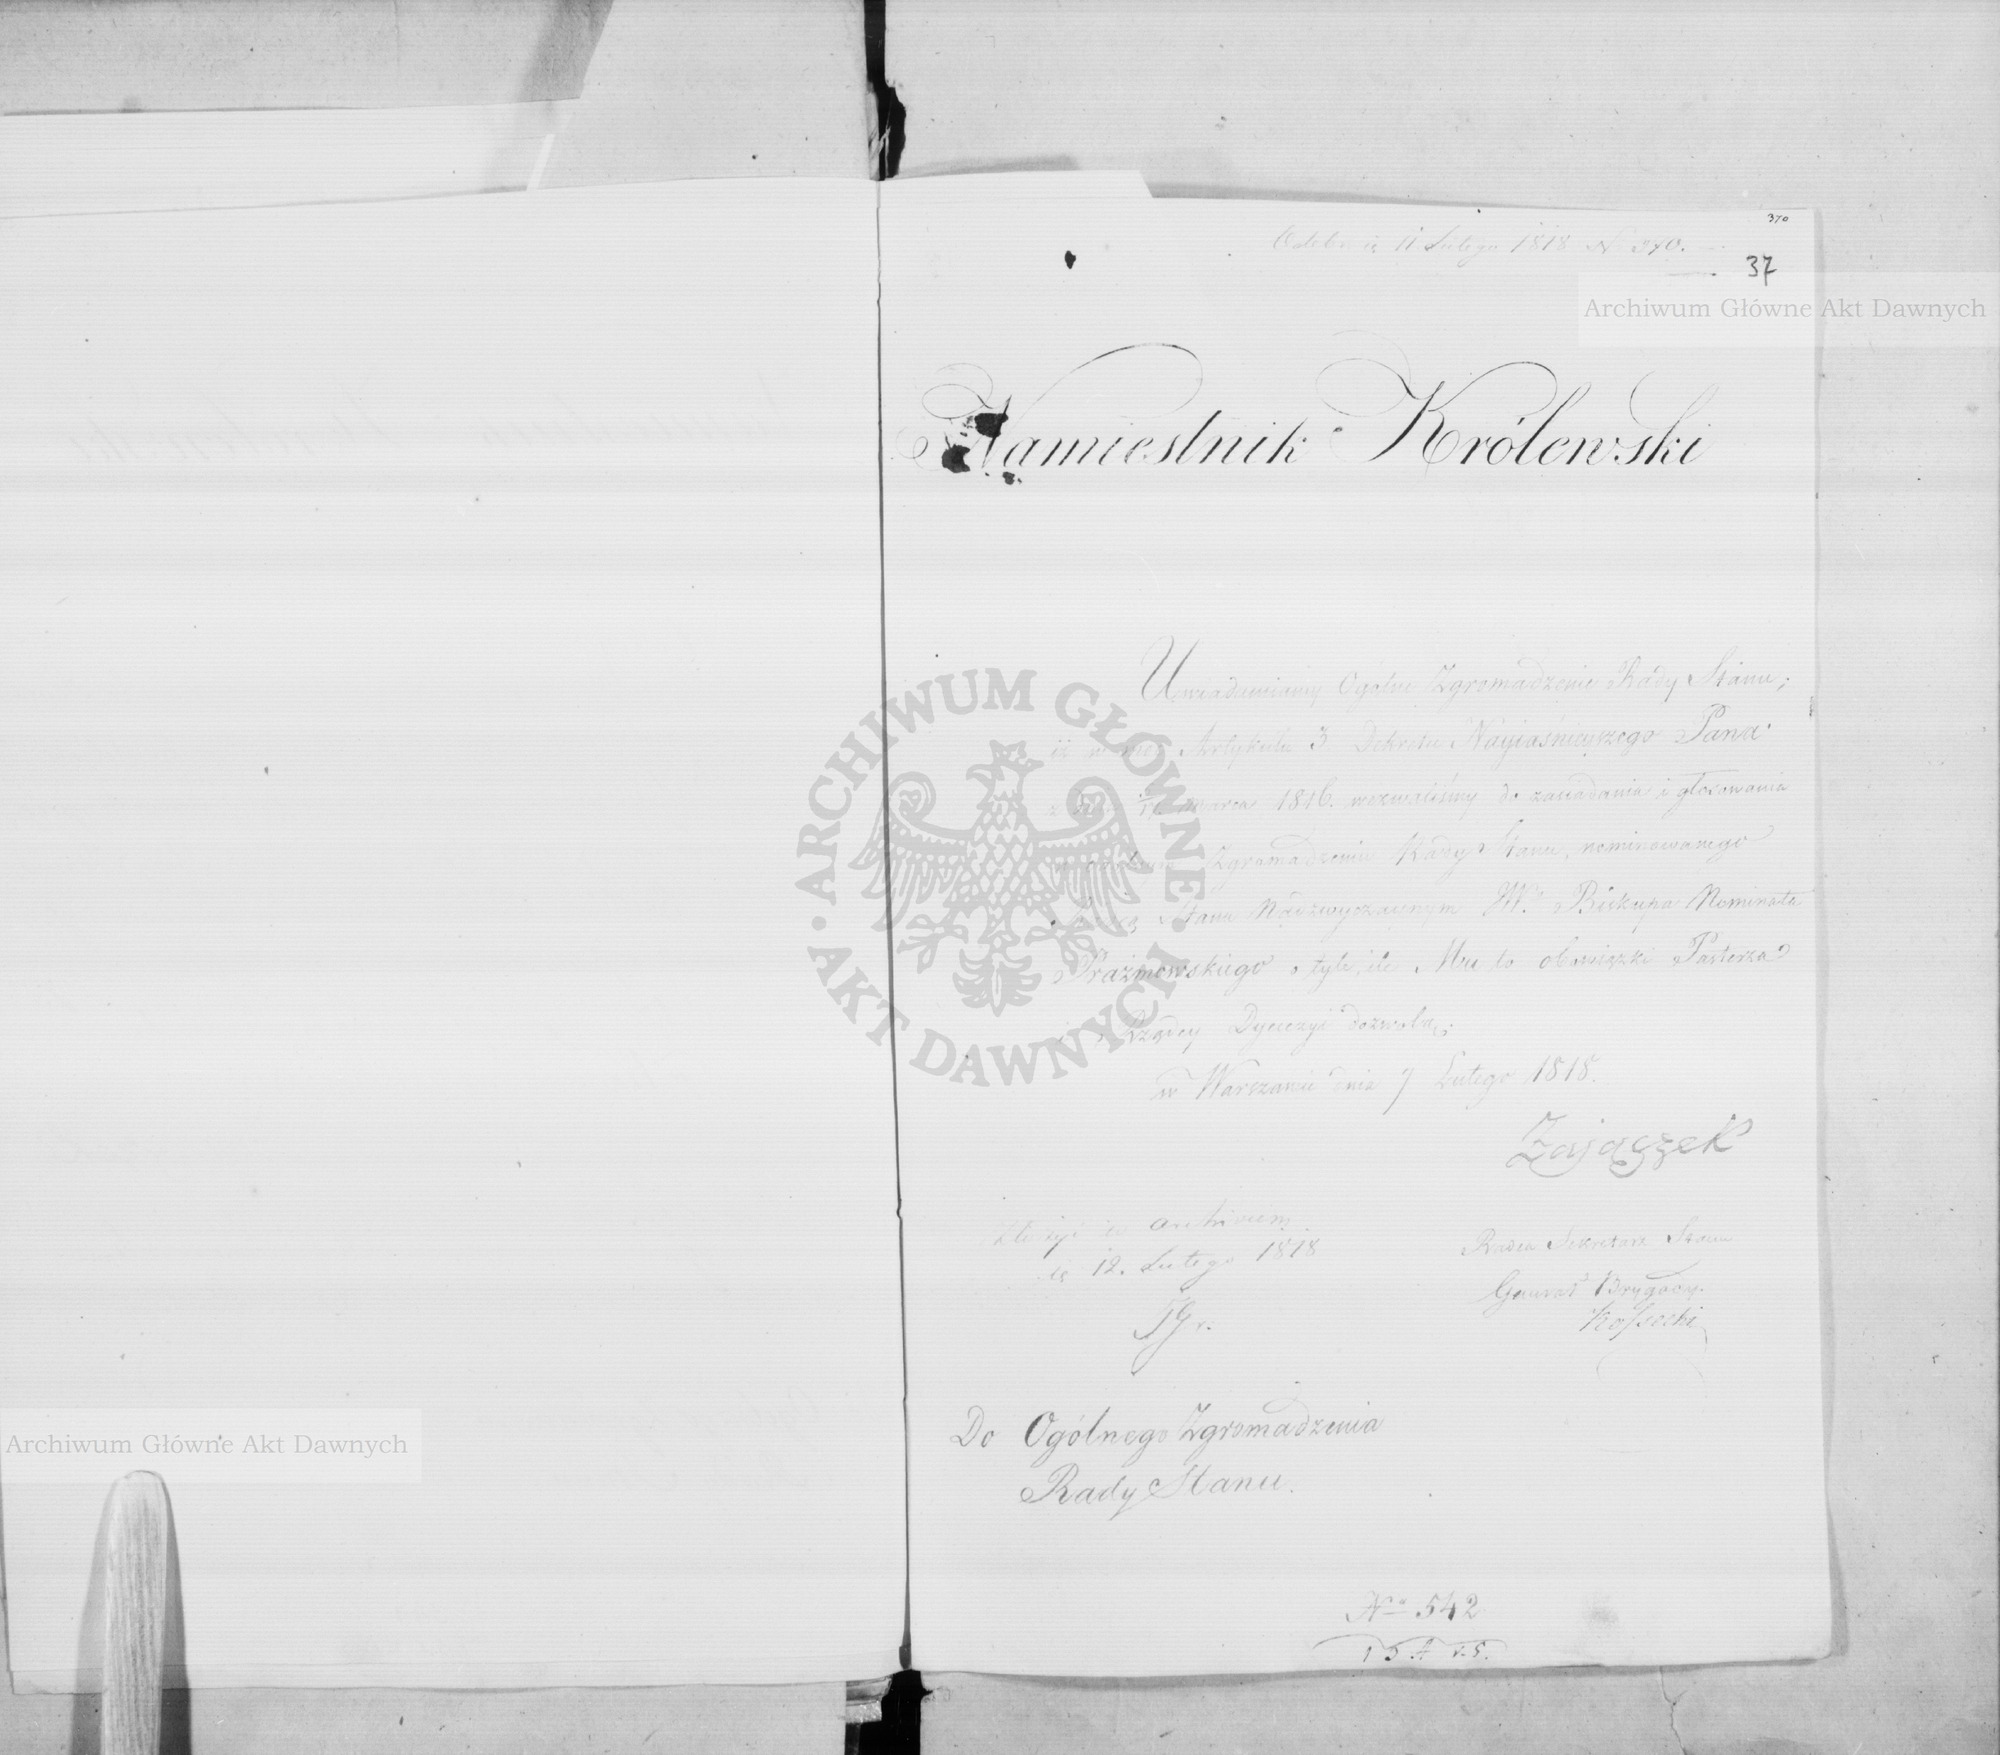 370
11 Lutego 1818 N 370.
37
Archiwum Główne Akt Dawnych
Namiestnik Królewski
Uwiadamiamy Ogólne Zgromadzenie Rady Stanu;
iż w moc Artykułu 3 Dekretu Nayiaśnieyszego Pana
z dnia marca 1816. wezwaliśmy do zasiadania i głosowania
Zgromadzeniu Rady Stanu, nominowanego
Radcą Stanu Nadzwyczaynym JW. Biskupa Nominata
Prażmowskiego o tyle, ile Mu to obowiązki Pasterza
i Rządcy Dyecezyi dozwolą;
w Warszawie dnia 7 Lutego 1818.
Zajączek
Złożyć do archiwum
12. Lutego 1818
Radca Sekretarz Stanu
Generał Brygady
Kossecki
Do Ogólnego Zgromadzenia
Rady Stanu.
No 542
ARCHIWUM GŁÓWNE AKT DAWNYCH
Archiwum Główne Akt Dawnych